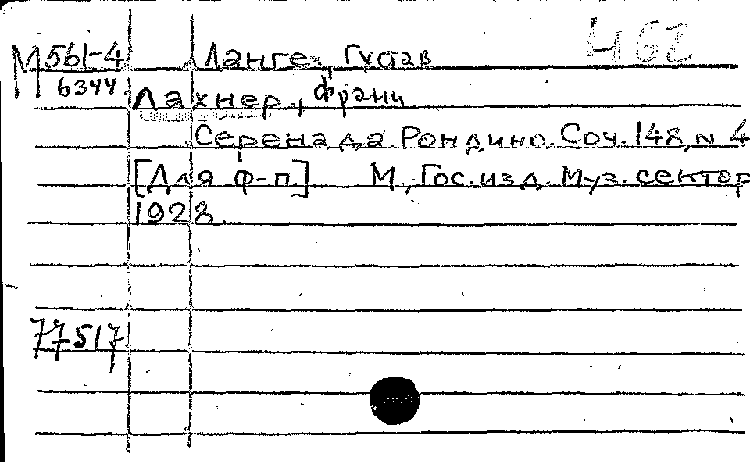 М 561-4 Ланге, Густав 462
6344 Лахнер, Франц
Серенада. Рондино. Соч. 148, N 4
[Для ф-п] М., Гос. изд. Муз. сектор
1928.
77517